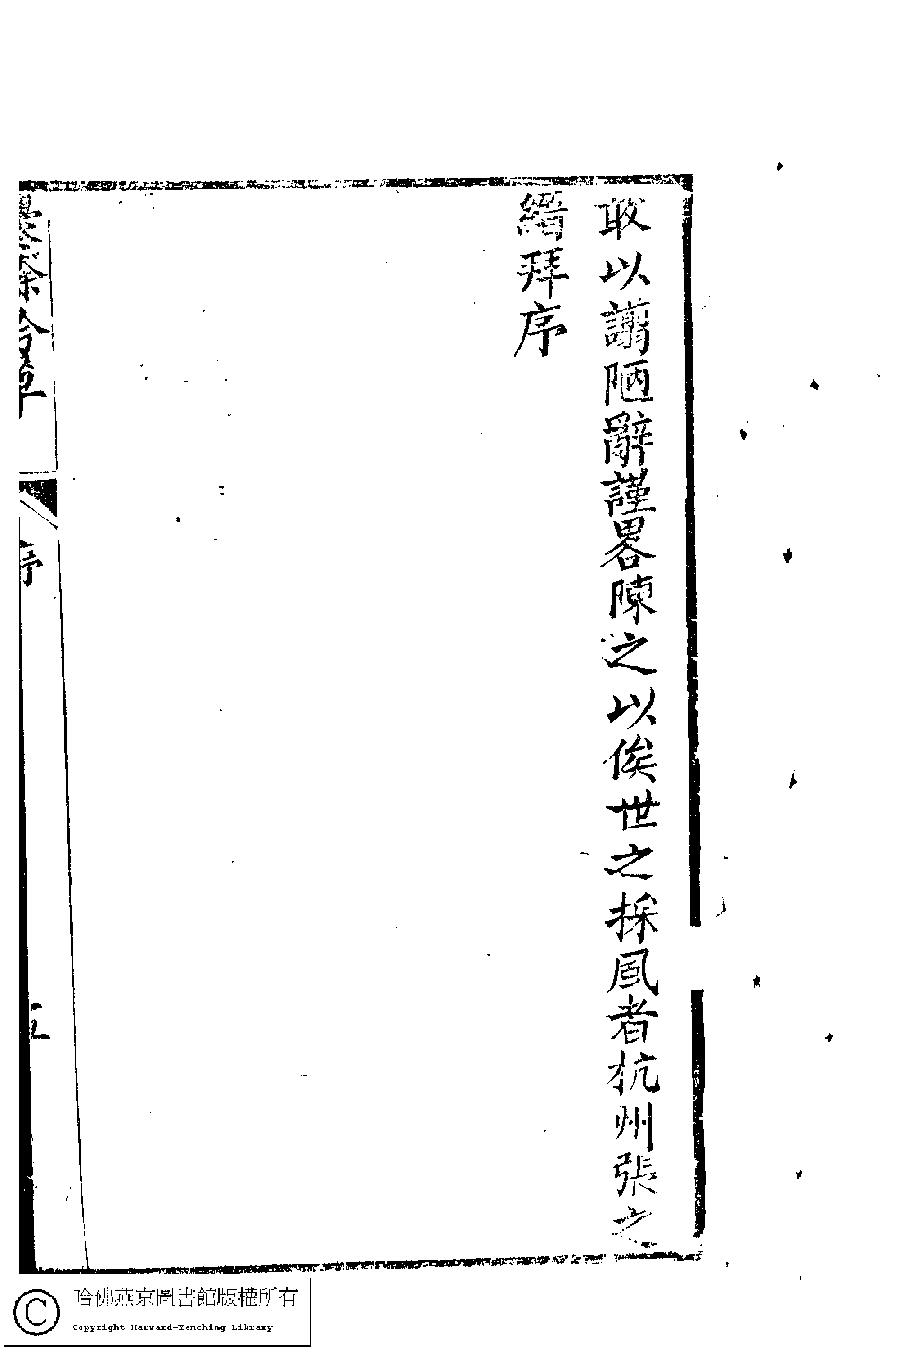 敢以謭陋辭謹畧陳之以俟世之採風者杭州張之
縉拜序
序
五
哈佛燕京圖書館版權所有
Copyright Harvard-Yenching Library